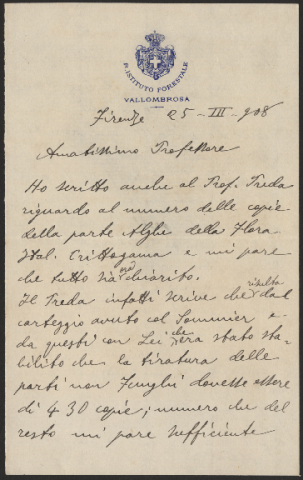 R. ISTITUTO FORESTALE
VALLOMBROSA
Firenze 25-III-908
Amatissimo Professore
Ho scritto anche al Prof. Preda
riguardo al numero delle copie
della parte Alghe della Flora
Ital. Crittogama e mi pare
che tutto sia ora chiarito.
Il Preda infatti scrive che risulta dal
carteggio avuto col Sommier e
da questi con Lei che era stato sta-
bilito che la tiratura delle
parti non Funghi dovesse essere
di 430 copie; numero che del
resto mi pare sufficiente